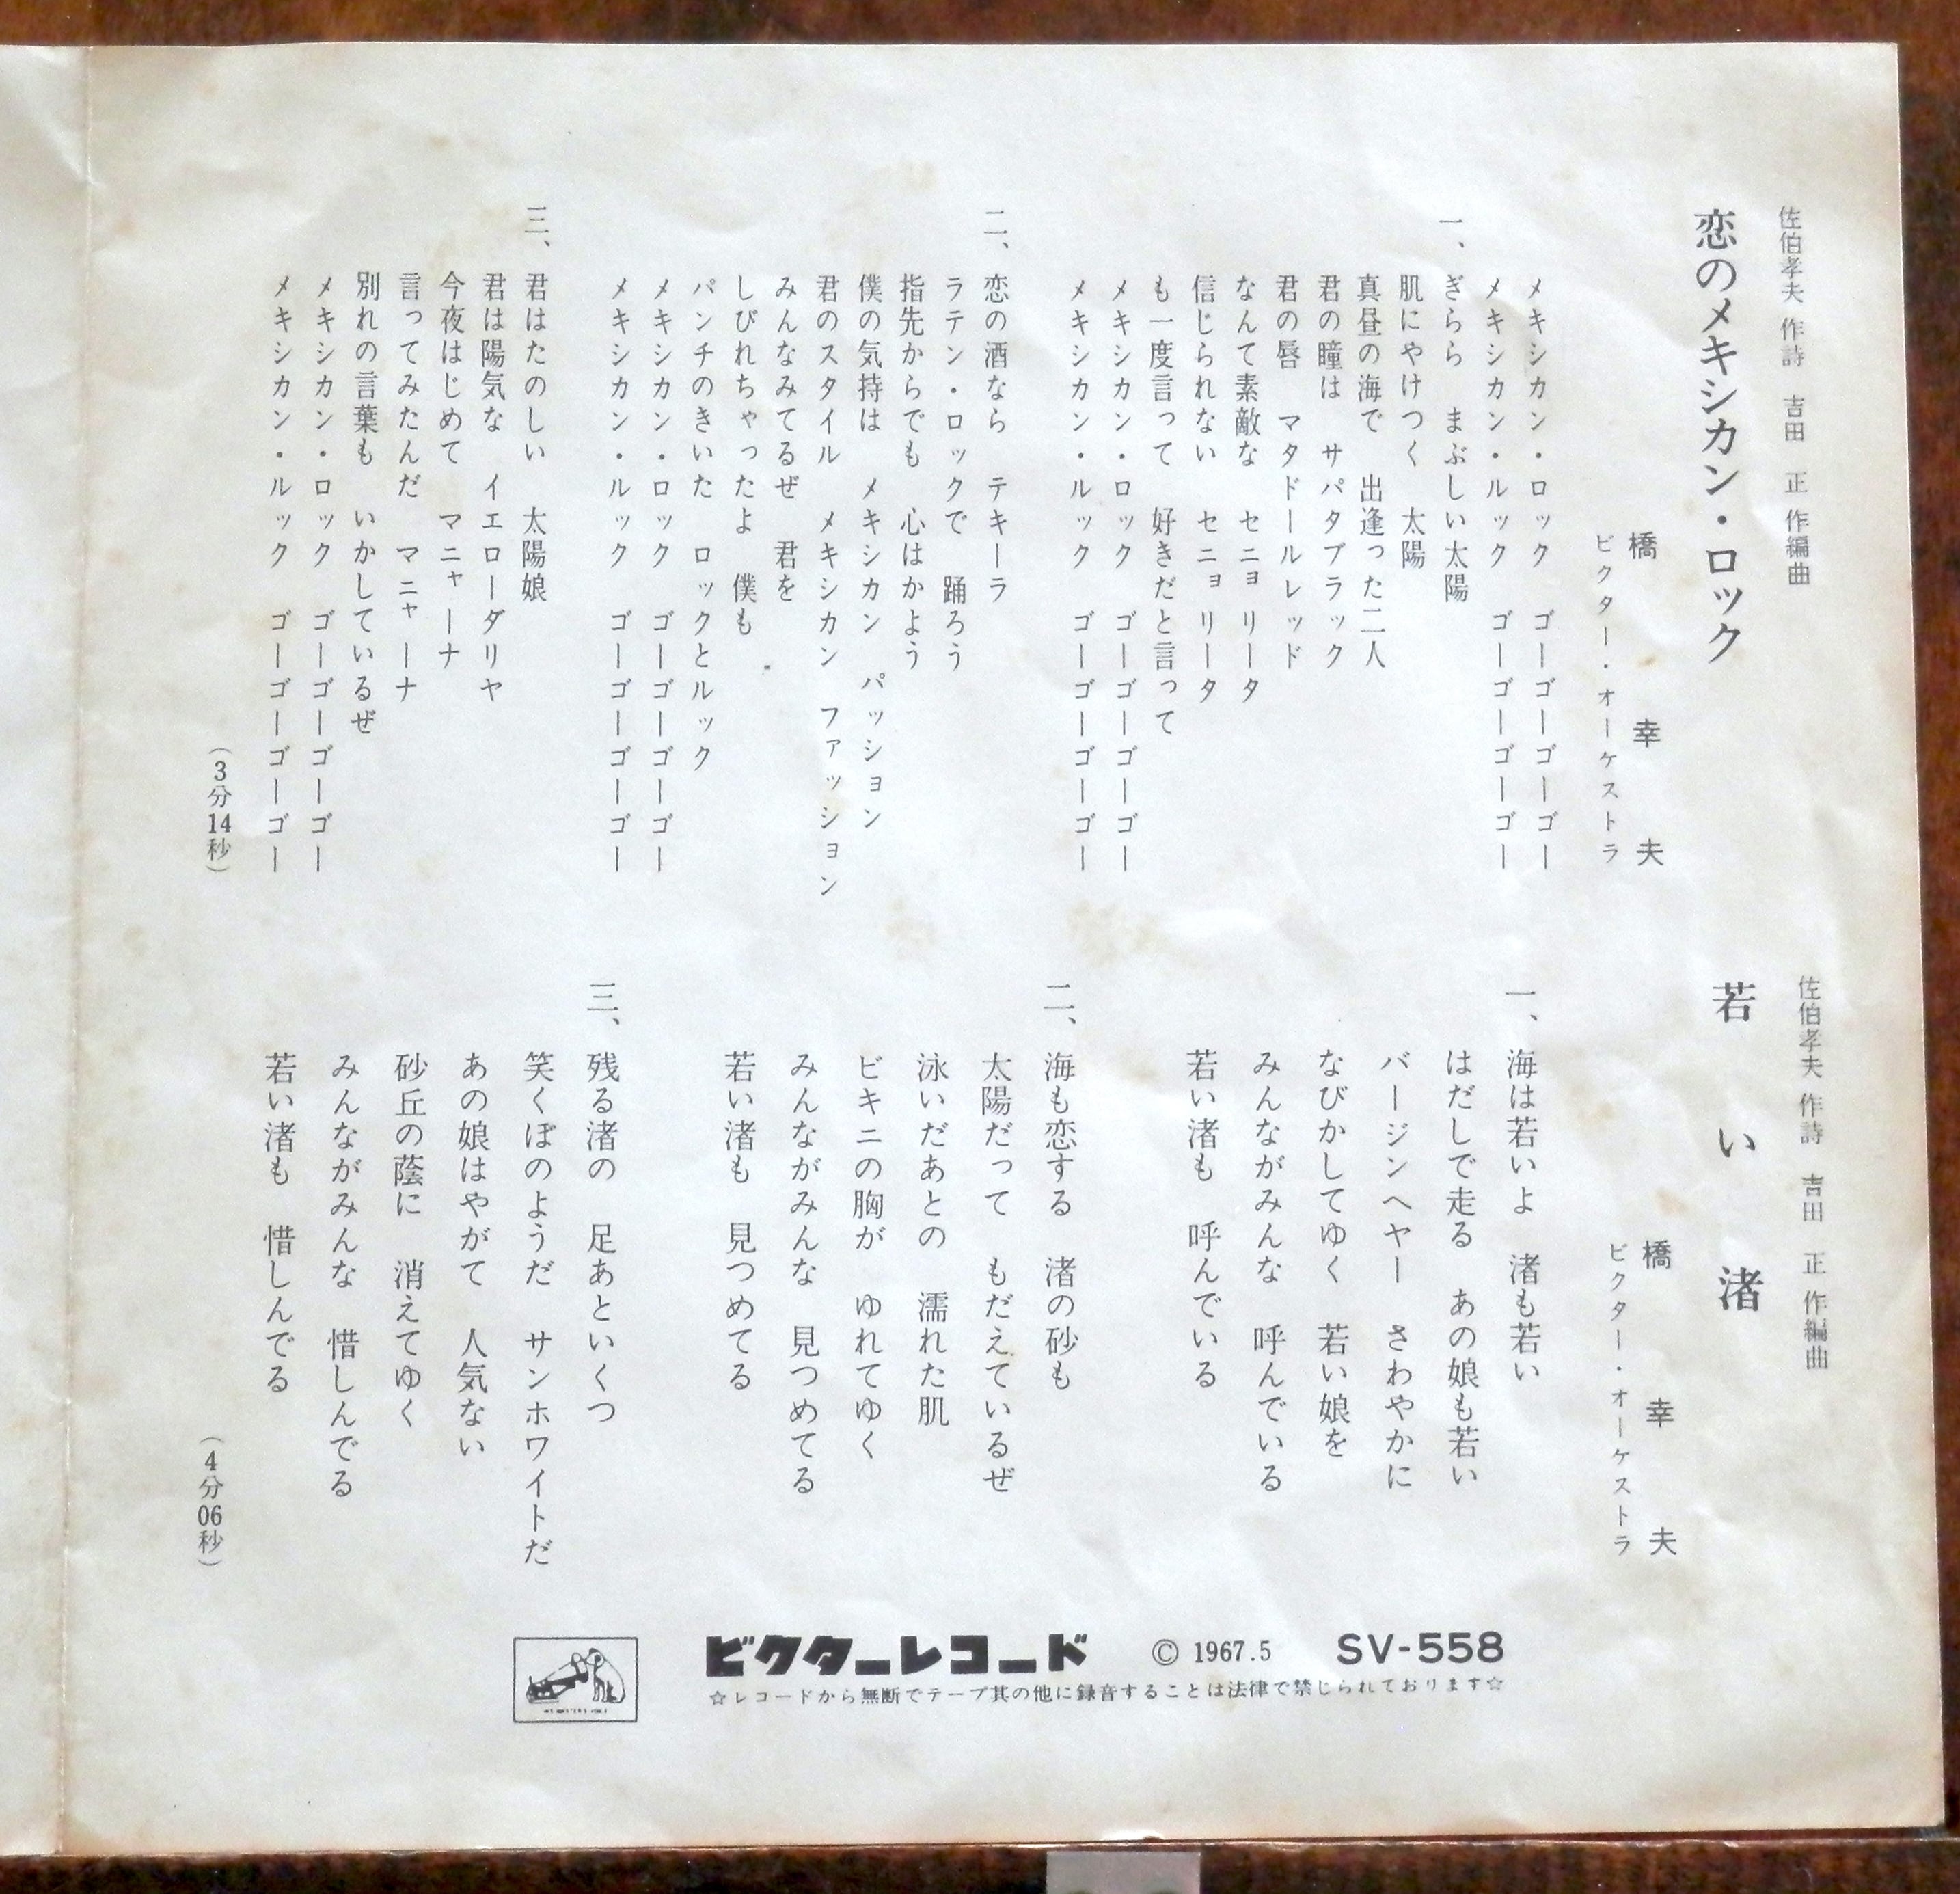 佐伯孝夫 作詩 吉田 正 作編曲
恋のメキシカン・ロック
橋 幸 夫
ビクター・オーケストラ
メキシカン・ロック ゴーゴーゴーゴー
メキシカン・ルック ゴーゴーゴーゴー
一、ぎらら まぶしい太陽
肌にやけつく 太陽
真昼の海で 出逢った二人
君の瞳は サパタブラック
君の唇 マタドールレッド
なんて素敵な セニョリータ
信じられない セニョリータ
も一度言って 好きだと言って
メキシカン・ロック ゴーゴーゴーゴー
メキシカン・ルック ゴーゴーゴーゴー
二、恋の酒なら テキーラ
ラテン・ロックで 踊ろう
指先からでも 心はかよう
僕の気持は メキシカン パッション
君のスタイル メキシカン ファッション
みんなみてるぜ 君を
しびれちゃったよ 僕も
パンチのきいた ロックとルック
メキシカン・ロック ゴーゴーゴーゴー
メキシカン・ルック ゴーゴーゴーゴー
三、君はたのしい 太陽娘
君は陽気な イエローダリヤ
今夜はじめて マニャーナ
言ってみたんだ マニャーナ
別れの言葉も いかしているぜ
メキシカン・ロック ゴーゴーゴーゴー
メキシカン・ルック ゴーゴーゴーゴー
(3分14秒)
佐伯孝夫 作詩 吉田 正 作編曲
若い渚
橋 幸 夫
ビクター・オーケストラ
一、海は若いよ 渚も若い
はだしで走る あの娘も若い
バージンヘヤー さわやかに
なびかしてゆく 若い娘を
みんながみんな 呼んでいる
若い渚も 呼んでいる
二、海も恋する 渚の砂も
太陽だって もだえているぜ
泳いだあとの 濡れた肌
ビキニの胸が ゆれてゆく
みんながみんな 見つめてる
若い渚も 見つめてる
三、残る渚の 足あといくつ
笑くぼのようだ サンホワイトだ
あの娘はやがて 人気ない
砂丘の蔭に 消えてゆく
みんながみんな 惜しんでる
若い渚も 惜しんでる
(4分06秒)
ビクターレコード © 1967.5 SV-558
☆レコードから無断でテープ其の他に録音することは法律で禁じられております☆
"HIS MASTER'S VOICE"